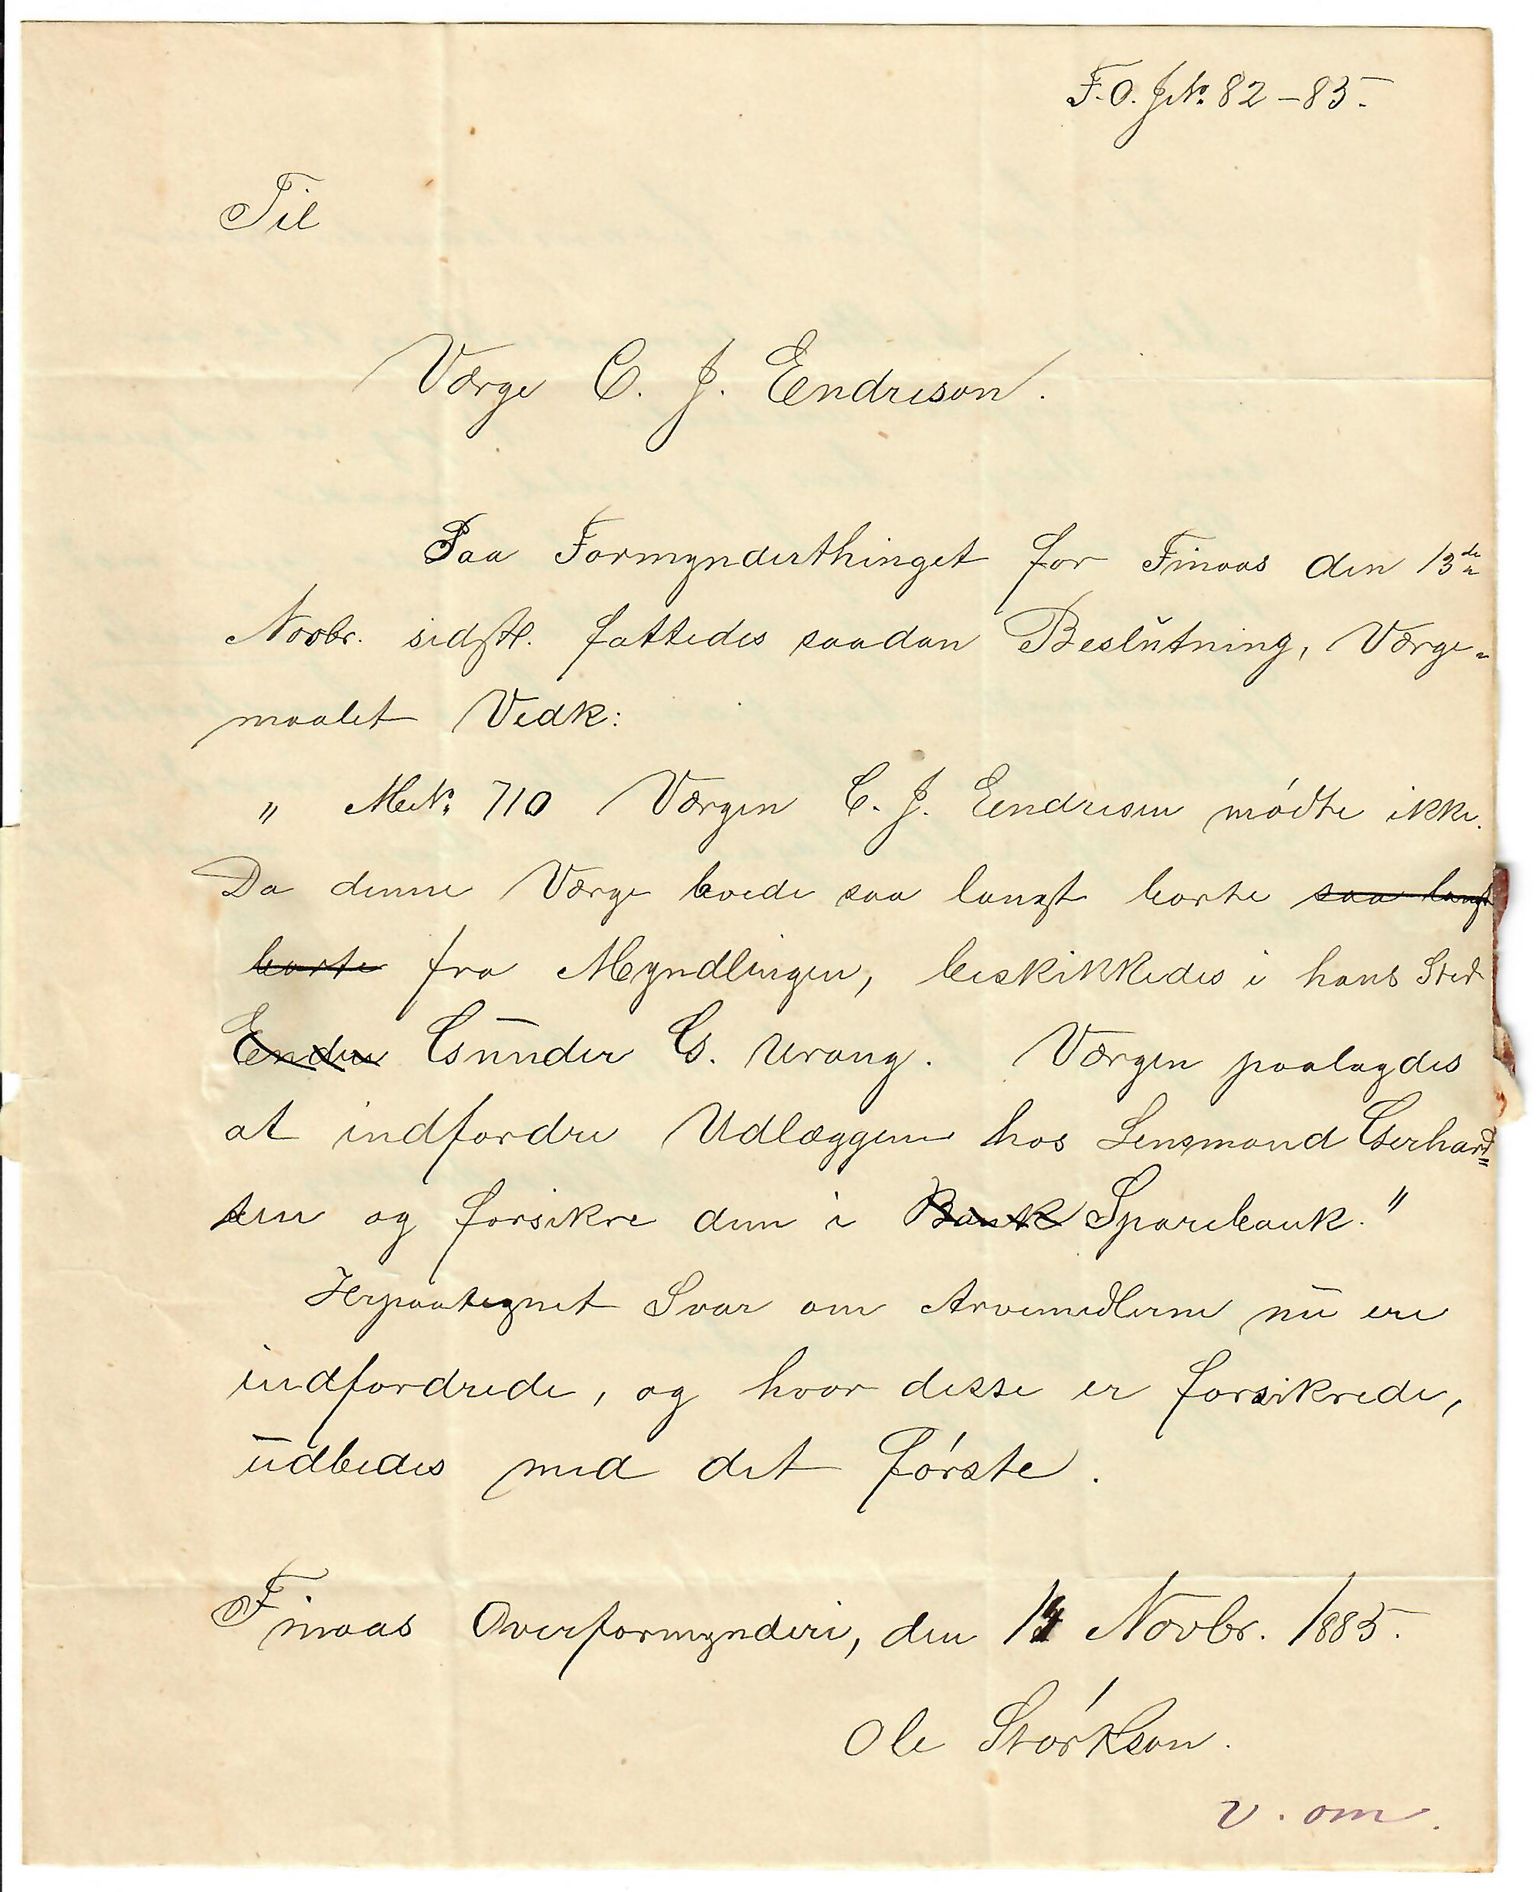 F.O. J.No. 82–85.
Til
Værge C. J. Eendreson.
Paa Formynderthinget for Finaas den 13de
Novbr. sidstl. fattedes saadan Beslutning, Værge-
maalet Vedk:
" M.No. 710 Værgen C. J. Eendresen mødte ikke.
Da denne Værge boede saa langt borte saa langt
borte fra Myndlingen, beskikkedes i hans Sted
Endre Gunder G. Urang. Værgen paalagdes
at indfordre Udlæggene hos Lensmand Gerhard-
sen og forsikre dem i Bank Sparebank."
Herpaategnet Svar om Arvemidlerne nu ere
indfordrede, og hvor disse er forsikrede,
udbedes med det første.
Finaas Overformynderi, den 14 Novbr. 1885.
Ole Størkson.
v. om.